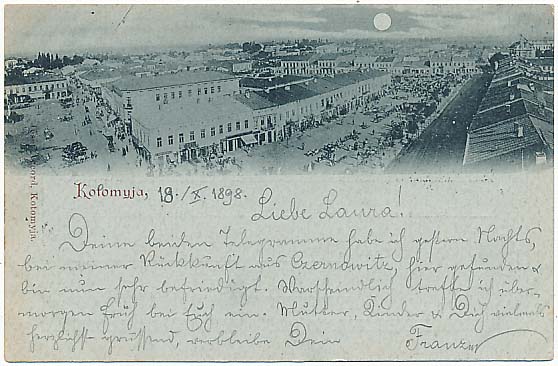 Kołomyja, 18/X. 1898.
Liebe Laura!
Deine beiden Telegramme habe ich gestern Nachts,
bei meiner Rückkunft aus Czernowitz, hier gefunden &
bin nun sehr befriedigt. Warscheindlich treffe ich über-
morgen früh bei Euch ein. Mutter, Kinder & Dich vielmals
herzlichst grüssend, verbleibe Dein Franz
Kołomyja.